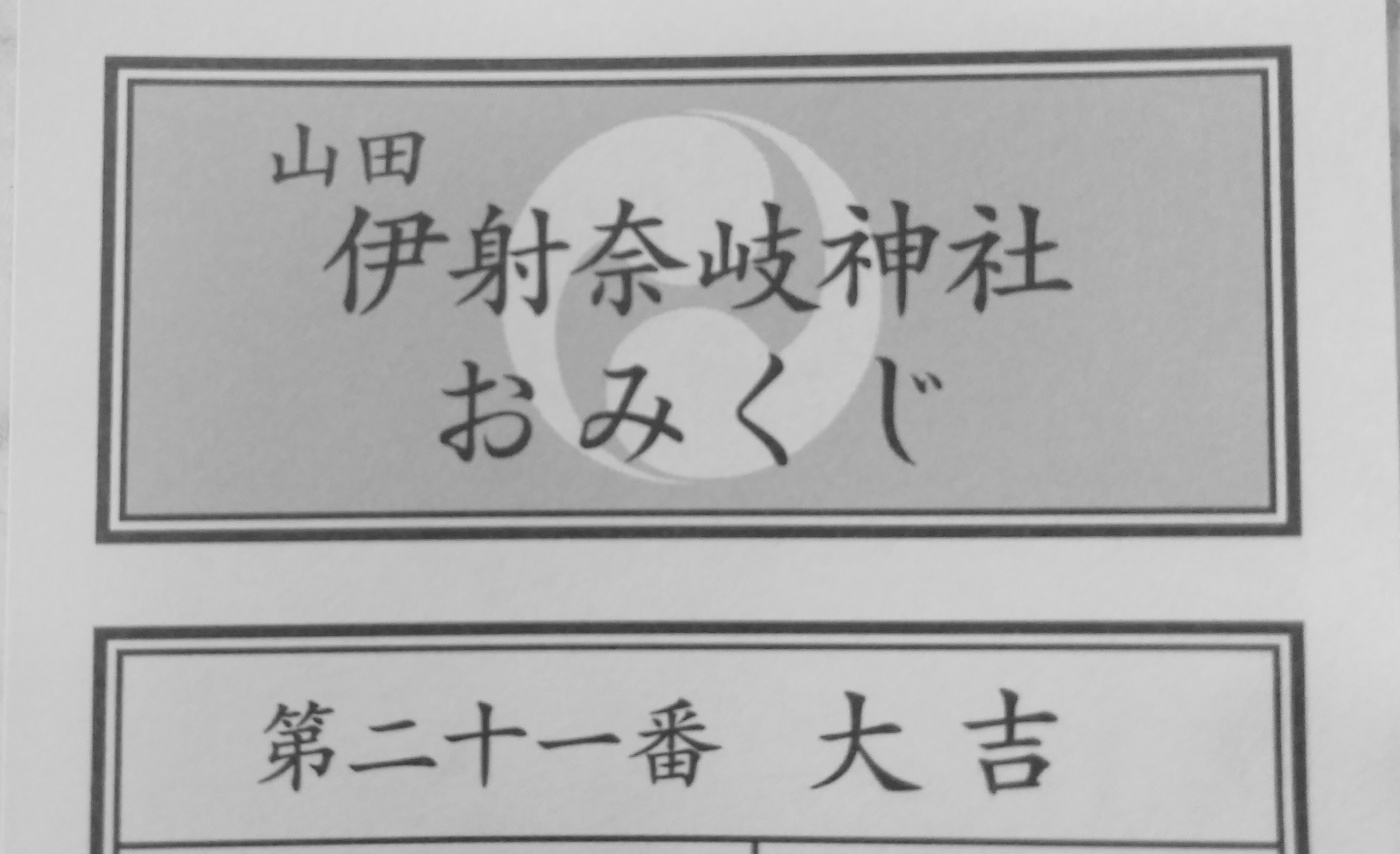 山田
伊射奈岐神社
おみくじ
第二十一番 大吉